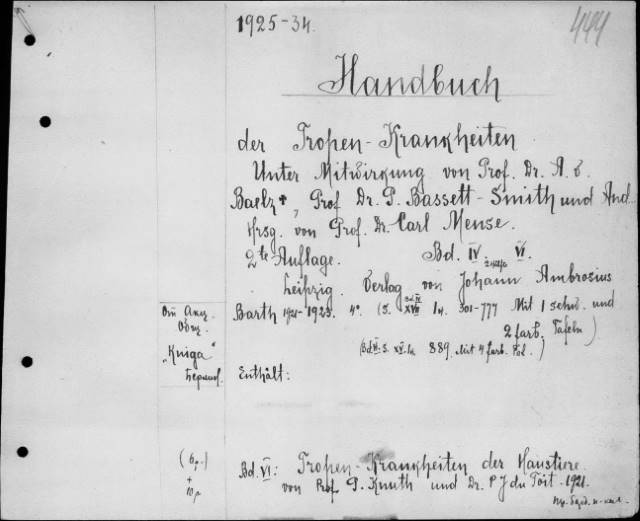 1925-34.
444
Handbuch
der Tropen-Krankheiten
Unter Mitwirkung von Prof. Dr. A. v.
Baelz †, Prof Dr. P. Bassett-Smith und And.
Hrsg. von Prof. Dr. Carl Mense.
2te Auflage. Bd. IV. VI.
Leipzig. Verlag von Johann Ambrosius
Barth 1921-1923. 4°. (S. Bd. IV XVIII 1 u. 301-777 Mit 1 schw. und
2 farb. Tafeln)
(Bd. VI. S. XV. 1 u. 889. Mit 4 farb. )
От Акц.
Общ.
„Книга“
Берлин.
Enthält:
(6р.)
+
10р
Bd. VI: Tropen-Krankheiten der Haustiere.
von Prof. P. Knuth und Dr. P J du Toit. 1921.